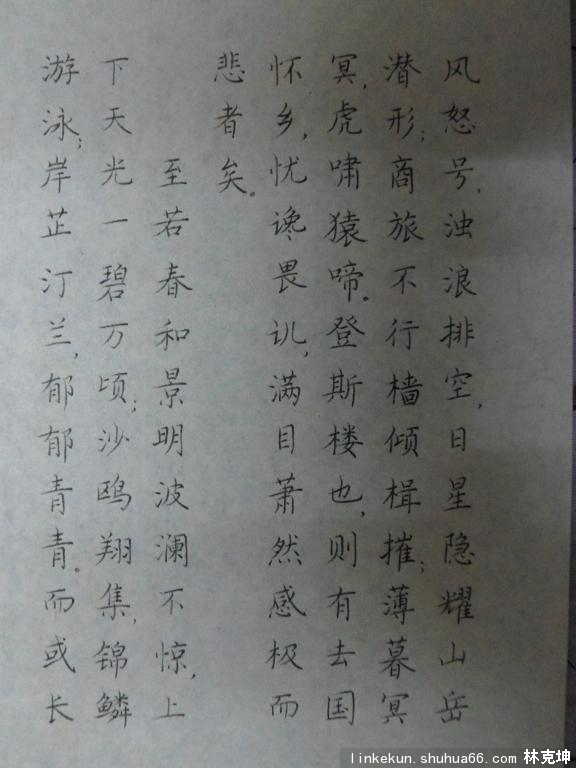 风怒号,浊浪排空,日星隐耀山岳
潜形;商旅不行樯倾楫摧;薄暮冥
冥,虎啸猿啼。登斯楼也,则有去国
怀乡,忧谗畏讥,满目萧然感极而
悲者矣。
至若春和景明波澜不惊,上
下天光一碧万顷;沙鸥翔集,锦鳞
游泳;岸芷汀兰,郁郁青青。而或长
linkekun.shuhua66.com 林克坤